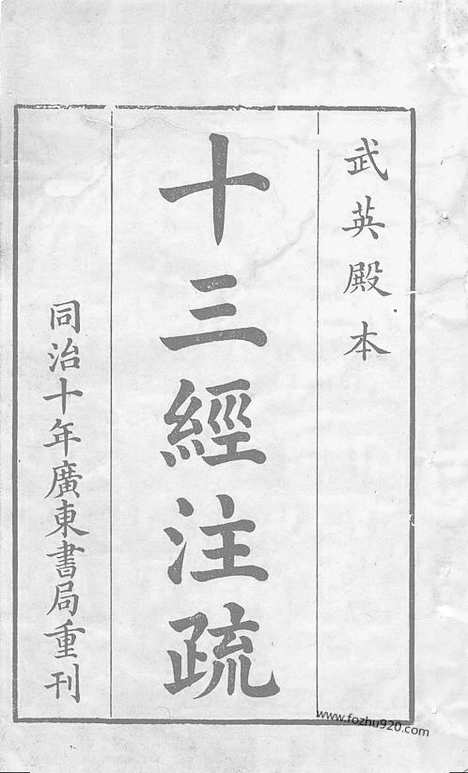 武英殿本
十三經注疏
同治十年廣東書局重刊
www.fozhu920.com